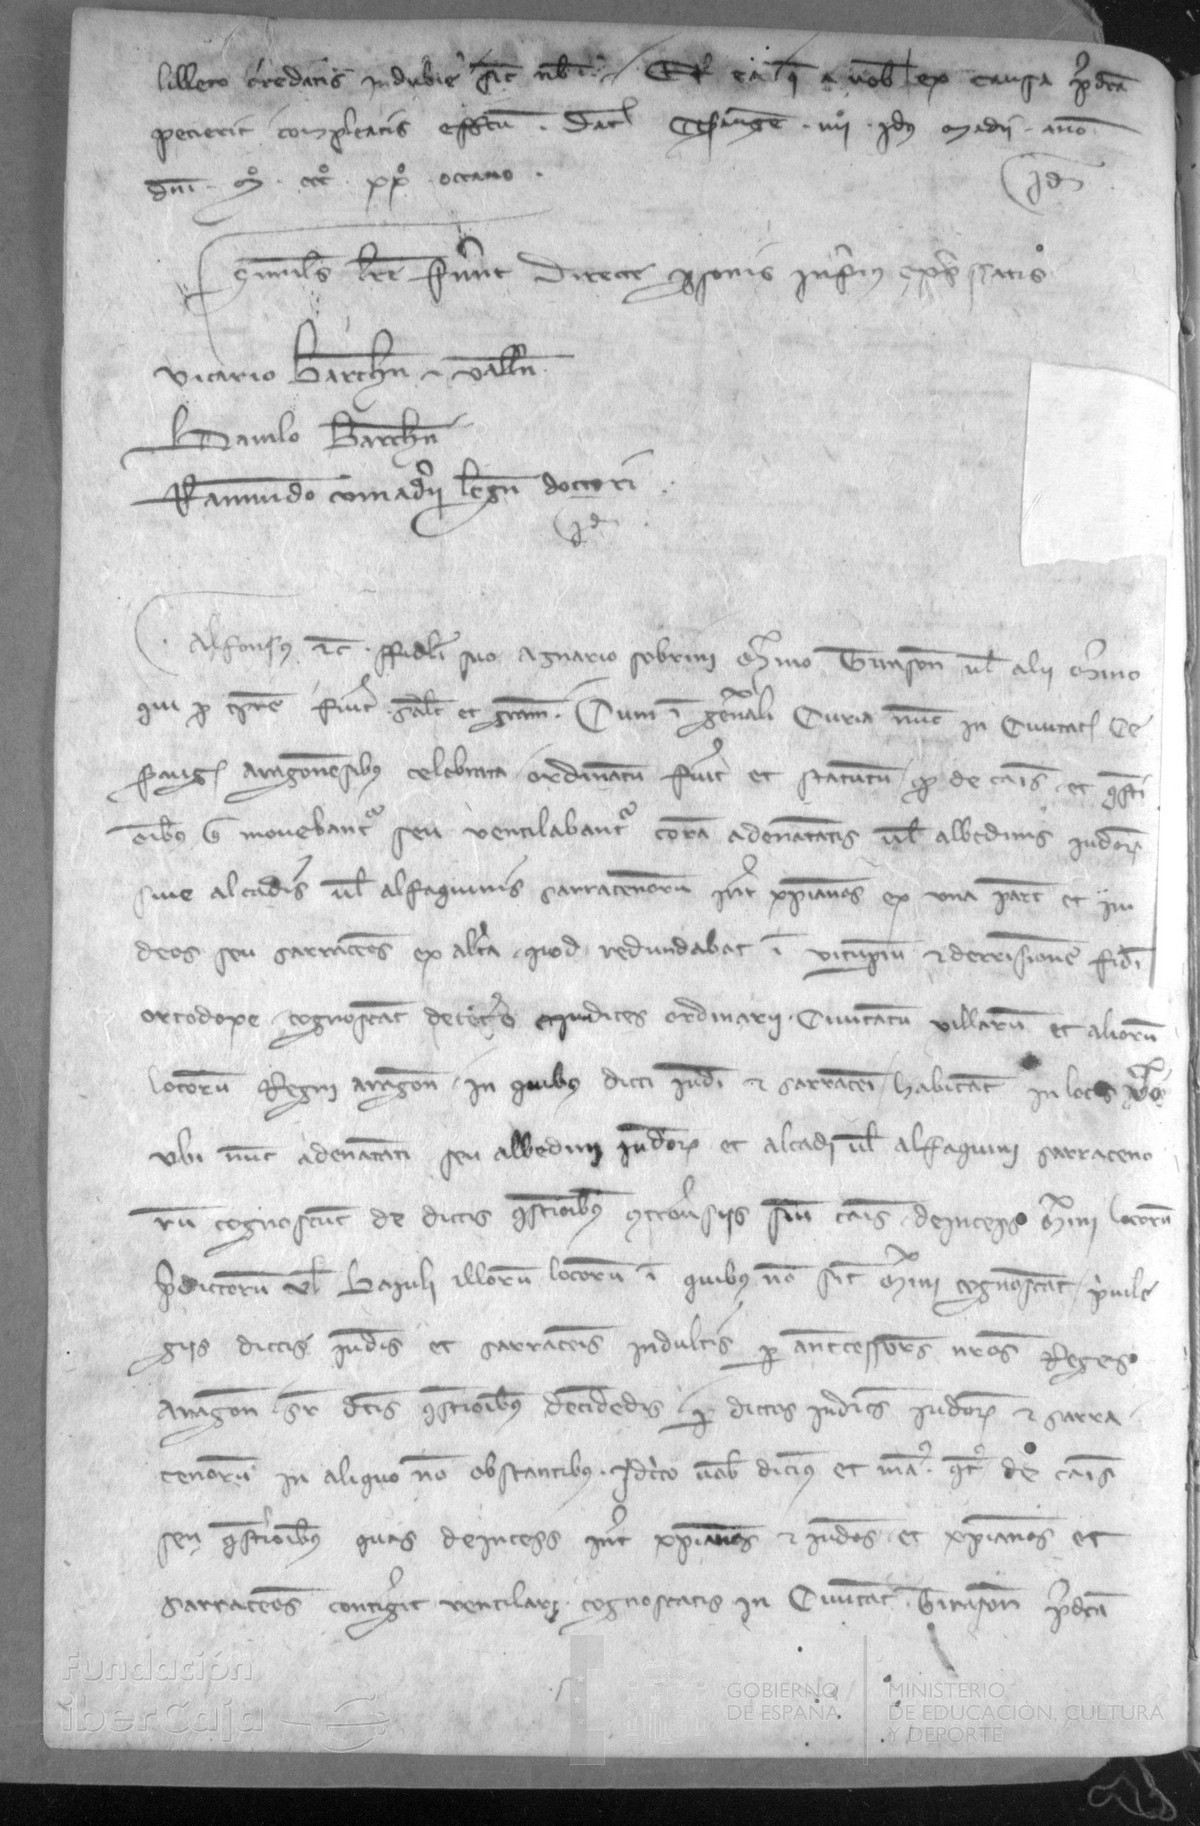 credatis indubie sicut nobis. Et ea que a vobis ex causa p̄dcā
petierit compleatis effectū. Datū Cesarauguste .iiii. idus madii anno
dnī. mº. cccº. xxº. octavo.
Id
Similes lrē fuerūt directe personis inferius expressatis
Vicario Barchn̄ et Vallen̄
Baiulo Barchn̄
Raimundo legū doctori
Id
Alfonsus etc. ffideli suo Agnario sobrini merino Tirason̄ vel alii merino
qui pro tempore fuerit salt et gram. Cum in generali Curia nunc in Civitate Ce
saraug aragonensibus celebrata ordinatū fuit et statutū quod de causis et questi
onibus que movebantur seu ventilabantur coram adenantatis vel albedinis iudeor
sive alcadis vel alfaquinis sarracenorū inter xpianos ex una parte et iu
deos seu sarracenos ex altera quod redundabat in vituperiū et derrisionem fidei
ortodoxe cognoscant de cetero iudices ordinarii Civitatū villarū et aliorū
locorū Regni aragon in quibus dicti iudei et sarraceni habitant in locis vero
ubi nunc adenantati seu albedini iudeor et alcadi vel alfaquini sarraceno
rū cognoscunt de dictis questionibus controversiis sive causis deinceps merini locorū
predictorū vel Baiuli illorū locorū in quibus non sint merini cognoscant privile
giis dictis iudeis et sarracenis indultis per antecessores nros Reges
Aragon super dictis questionibus decidendis per dictos iudices iudeor et sarra
cenorū in aliquo non obstantibus. Idcirco vobis dicimus et mandamus quatenus de causis
seu questionibus quas deinceps inter xpianos et iudeos et xpianos et
sarracenos contigerit ventilari cognoscatis in Civitate Tirason̄ predicta
Fundación
iberCaja
GOBIERNO
DE ESPAÑA
MINISTERIO
DE EDUCACIÓN, CULTURA
Y DEPORTE